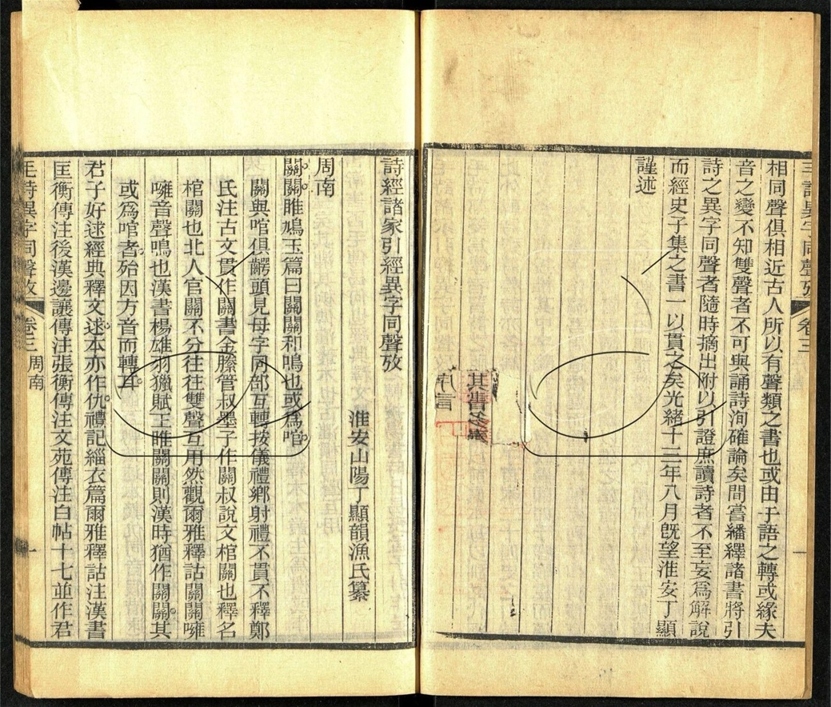 毛詩異字同聲攷 卷三 一
相同聲俱相近古人所以有聲類之書也或由于語之轉或緣夫
音之變不知雙聲者不可與誦詩洵確論矣間嘗繙繹諸書將引
詩之異字同聲者隨時摘出附以引證庶讀詩者不至妄爲解說
而經史子集之書一以貫之矣光緒十三年八月旣望淮安丁顯
謹述
詩經諸家引經異字同聲攷
淮安山陽丁顯韻漁氏纂
周南
關關雎鳩玉篇曰關關和鳴也或爲喧
關與喧俱齶頭見母字同部互轉按儀禮鄉射禮不貫不釋鄭
氏注古文貫作關書金縢管叔墨子作關叔說文棺關也釋名
棺關也北人官關不分往往雙聲互用然觀爾雅釋詁關關噰
噰音聲鳴也漢書楊雄羽獵賦王雎關關則漢時猶作關關其
或爲喧者殆因方音而轉耳
君子好逑經典釋文逑本亦作仇禮記緇衣篇爾雅釋詁注漢書
匡衡傳注後漢邊讓傳注張衡傳注文苑傳注白帖十七並作君
毛詩異字同聲攷 卷三 周南 一